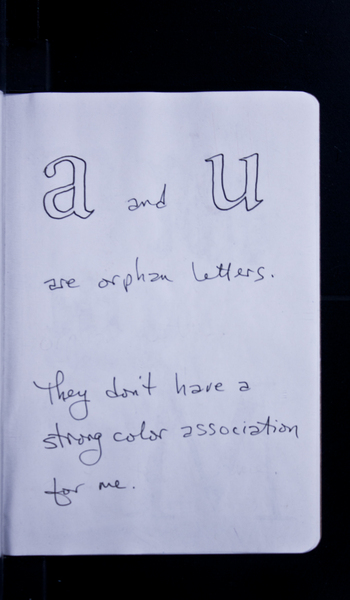 a and u
are orphan letters.
They don't have a
strong color association
for me.